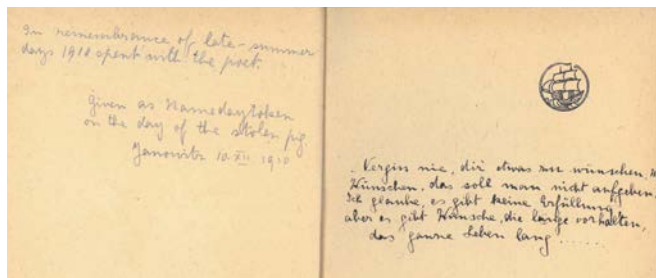 In remembrance of late-summer
days 1910 spent with the poet.
given as Namedaytoken
on the day of the stolen pig.
Janowitz 10 XII 1910
Vergiss nie, dir etwas zu wünschen,
Wünschen, das soll man nicht aufgeben.
Ich glaube, es gibt keine Erfüllung
aber es gibt Wünsche, die lange vorhalten,
das ganze Leben lang ......